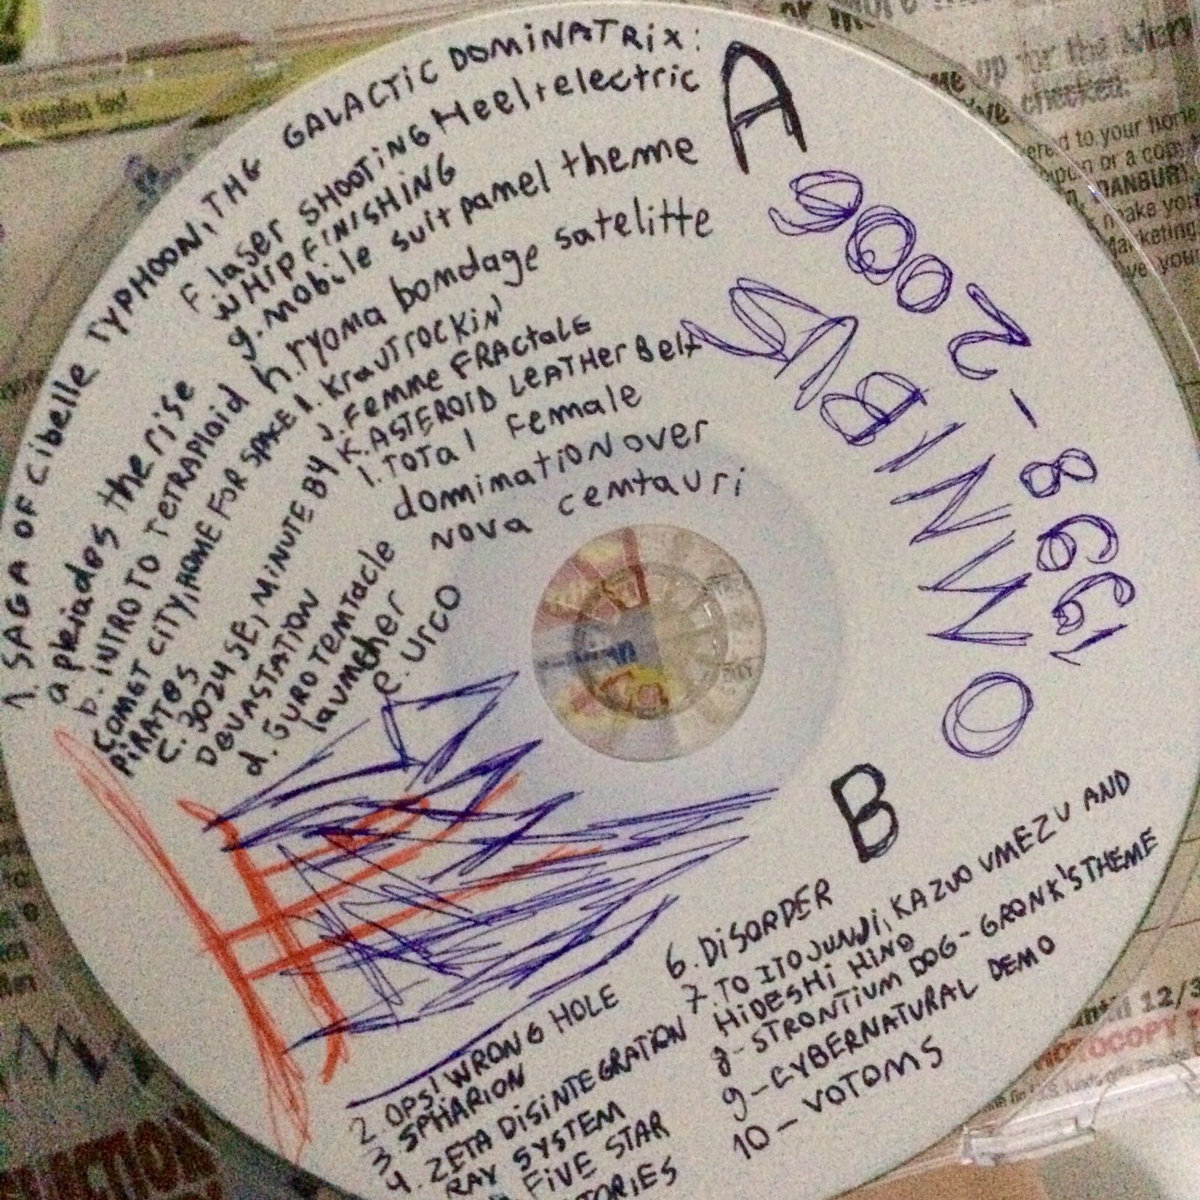 A
1. SAGA OF CIBELLE TYPHOON, THE GALACTIC DOMINATRIX:
a pleiades the rise
b. INTRO TO TETRAPLOID
COMET CITY, HOME FOR SPACE
PIRATES
C. 3024 SE, MINUTE BY
DEVASTATION
d. GURO TEMTACLE
laumcher
e. URCO
F. laser SHOOTING Heel+electric
WHIP FINISHING
g. mobile suit pamel theme
h. ryoma bomdage satelitte
I. KRAUTROCKIN'
J. FEMME FRACTALE
K. ASTEROID LEATHER BELT
l. TOTAL FEMALE
dommimatioN over
NOVA cemtauri
OMNIBUS
1998-2006
B
2 OPS! WRONG HOLE
3 SPHARION
4. ZETA DISINTEGRATION
RAY SYSTEM
FIVE STAR
STORIES
6. DISORDER
7. TO ITO JUNJI, KAZUO UMEZU AND
HIDESHI HINO
8 - STRONTIUM DOG - GRONK'S THEME
9 - CYBERNATURAL DEMO
10 - VOTOMS
or more
me up for the
checked.
to your home
or a
DANBURY
make you
Marketing
until 12/3
PHOTOCOPY